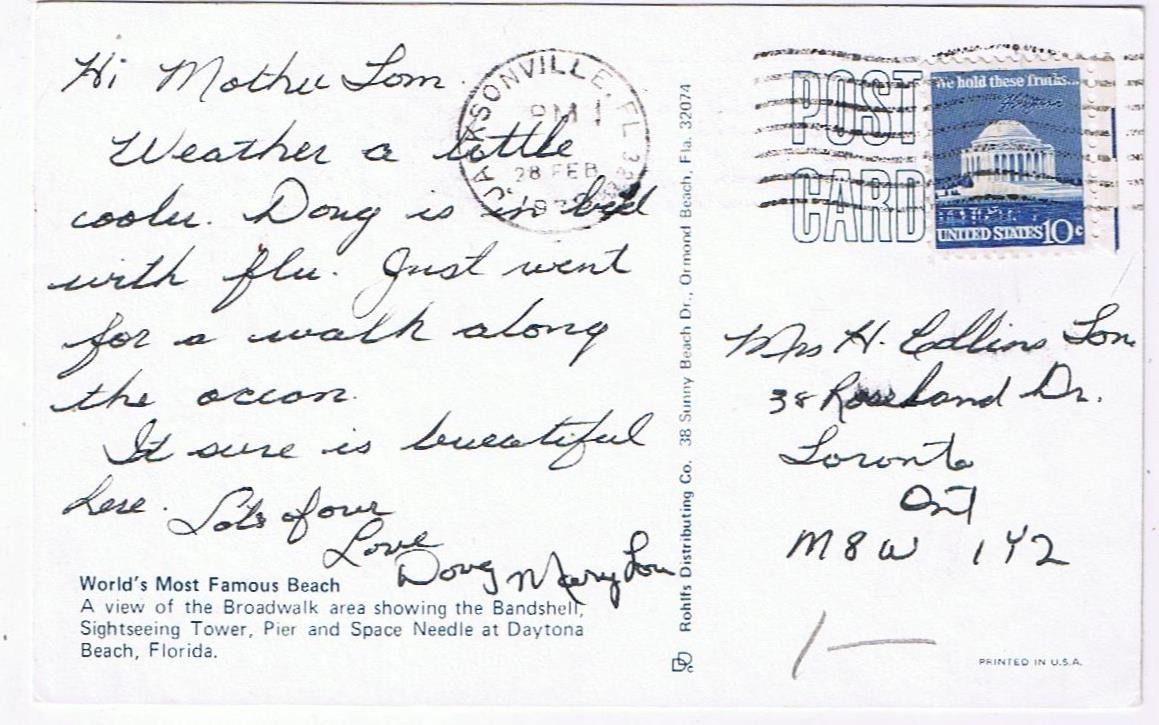 Hi Mother Tom
Weather a little
cooler. Doug is in bed
with flu. Just went
for a walk along
the ocean.
It sure is bueatiful
here. Lots of our
Love
Doug Mary Lou
World's Most Famous Beach
A view of the Broadwalk area showing the Bandshell,
Sightseeing Tower, Pier and Space Needle at Daytona
Beach, Florida.
JACKSONVILLE, FL
PM
28 FEB
Rohlfs Distributing Co. 38 Sunny Beach Dr., Ormond Beach, Fla. 32074
POST
CARD
We hold these Truths...
UNITED STATES 10c
Mrs H. Collins Tom
38 Land Dr.
Toronto
Ont
M8W 1Y2
PRINTED IN U.S.A.